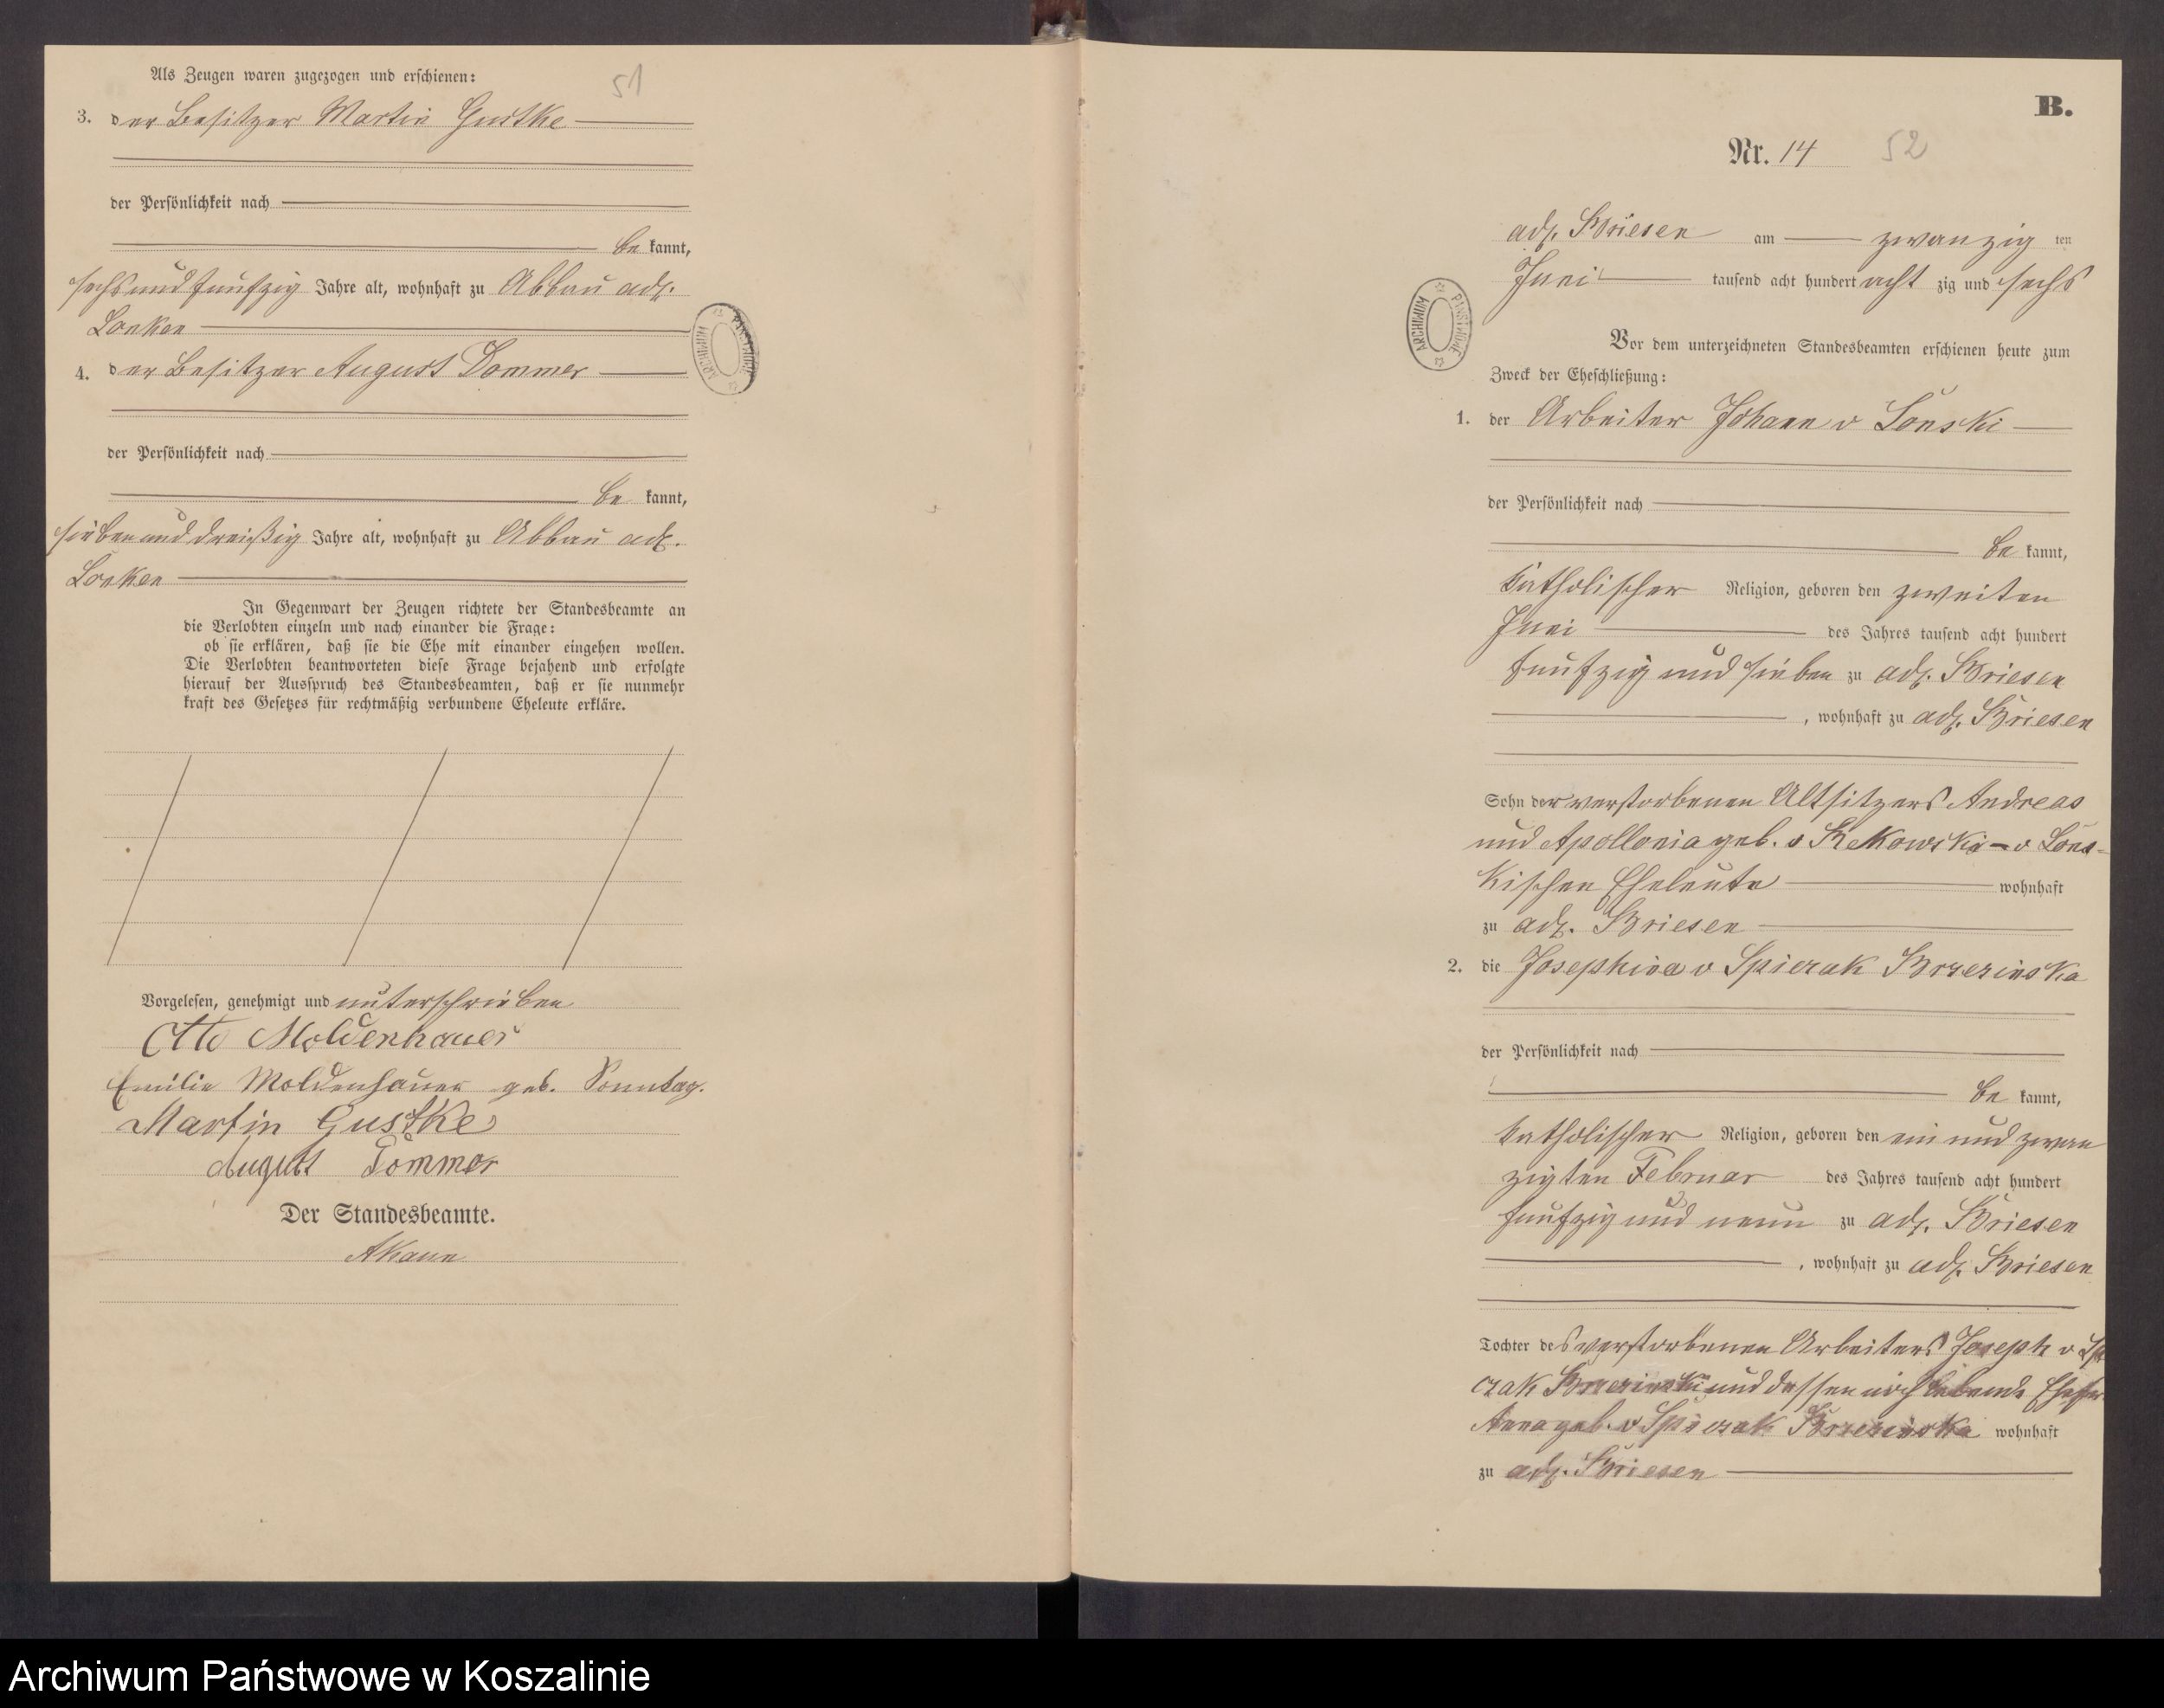 Als Zeugen waren zugezogen und erschienen:
51
3. der Besitzer Martin Gustke
der Persönlichkeit nach
be kannt,
sechs und funfzig Jahre alt, wohnhaft zu Abbau adl.
Lonken
4. der Besitzer August Dommer
der Persönlichkeit nach
be kannt,
sieben und dreißig Jahre alt, wohnhaft zu Abbau adl.
Lonken
In Gegenwart der Zeugen richtete der Standesbeamte an
die Verlobten einzeln und nach einander die Frage:
ob sie erklären, daß sie die Ehe mit einander eingehen wollen.
Die Verlobten beantworteten diese Frage bejahend und erfolgte
hierauf der Ausspruch des Standesbeamten, daß er sie nunmehr
kraft des Gesetzes für rechtmäßig verbundene Eheleute erkläre.
Vorgelesen, genehmigt und unterschrieben
Otto Moldenhauer
Emilie Moldenhauer geb. Sonntag.
Martin Gustke
August Dommer
Der Standesbeamte.
ARCHIWUM PAŃSTWOWE
B.
Nr. 14 52
adl. Briesen am zwanzig ten
Juni tausend acht hundert acht zig und sechs
ARCHIWUM PAŃSTWOWE
Vor dem unterzeichneten Standesbeamten erschienen heute zum
Zweck der Eheschließung:
1. der Arbeiter Johann v Lonski
der Persönlichkeit nach
be kannt,
katholischer Religion, geboren den zweiten
Juni des Jahres tausend acht hundert
funfzig und sieben zu adl. Briesen
, wohnhaft zu adl. Briesen
Sohn der verstorbenen Altsitzers Andreas
und Apollonia geb. v Rekowski - v Lons-
kischen Eheleute wohnhaft
zu adl. Briesen
2. die Josephina v Spiczak Brzezinska
der Persönlichkeit nach
be kannt,
katholischer Religion, geboren den ein und zwan
zigten Februar des Jahres tausend acht hundert
funfzig und neun zu adl. Briesen
, wohnhaft zu adl. Briesen
Tochter des verstorbenen Arbeiters Joseph v Spi
czak Brzezinski und dessen noch lebende Ehefr
Anna geb. v Spiczak Brzezinska wohnhaft
zu adl. Briesen
Archiwum Państwowe w Koszalinie